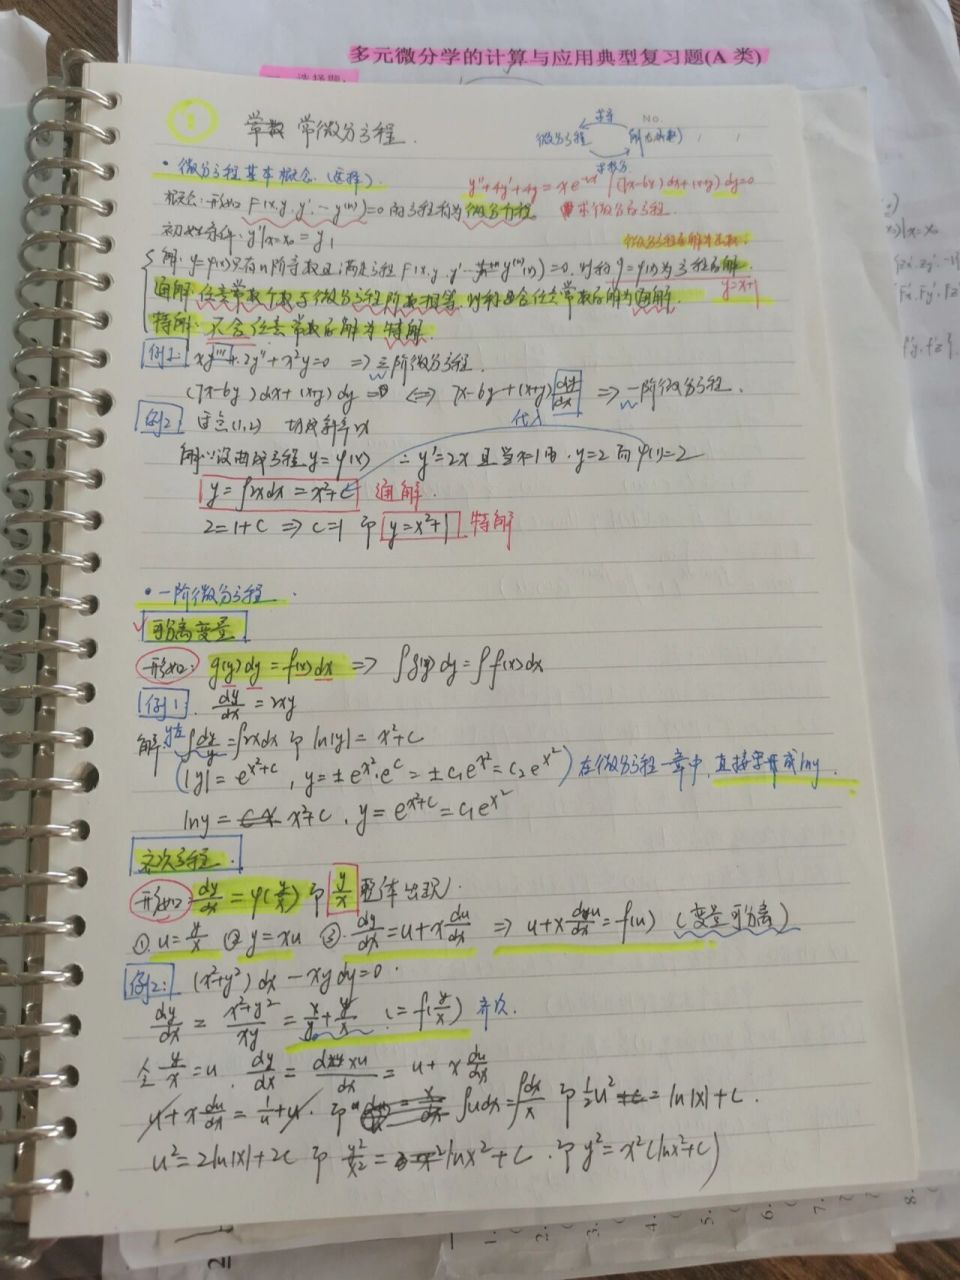 多元微分学的计算与应用典型复习题(A 类)
选择题:
1
常微分方程.
No.
求导
微分方程 解(原函数)
求积分
• 微分方程基本概念.(选择).
y''+4y'+4y = xe^{-2x} (7x-6y)dx+(x+y)dy=0
概念:形如 F(x,y,y',…y^{(n)})=0 的方程称为微分方程 求微分方程.
初始条件: y'|x=x₀ = y₁
解: y=φ(x)只有n阶导数且满足方程 F(x,y,y'…y^{(n)}(x))=0. 则称 y=φ(x)为方程的解.
y=x+1
通解: 任意常数个数与微分方程阶数相等. 则称含任意常数的解为通解.
特解: 不含任意常数的解为特解.
例1: xy'''+2y''+x²y=0 ⇒ 三阶微分方程.
(7x-6y)dx+(x+y)dy=0 ⟺ 7x-6y+(x+y)dy/dx ⇒ 一阶微分方程.
例2 过点(1,2) 切线斜率2x
代入
解: 设曲线方程 y=φ(x) ∴y'=2x 且当x=1时. y=2 而φ(1)=2
y=∫2xdx = x²+C 通解.
2=1+C ⇒ C=1 即 y=x²+1 特解
• 一阶微分方程.
√ 可分离变量
形如: g(y)dy = f(x)dx ⇒ ∫g(y)dy=∫f(x)dx
例1. dy/dx = 2xy
解: y左 ∫dy/y=∫2xdx 即 ln|y| = x²+C
(|y|= e^{x²+C}, y=±e^{x²}·e^C = ±C₁e^{x²} = C₂e^{x²}) 在微分方程一章中,直接写成lny.
lny = x²+C, y= e^{x²+C} = C₁e^{x²}
齐次方程.
形如: dy/dx = φ(y/x) 即 y/x 整体出现.
① u=y/x ② y=xu ③ dy/dx=u+x du/dx ⇒ u+x du/dx=f(u) (变量可分离)
例2: (x²+y²)dx - xydy=0.
dy/dx = (x²+y²)/xy = x/y + y/x (= f(y/x)) 齐次.
令 y/x=u. dy/dx = dxu/dx = u+x du/dx
u+x du/dx = 1/u+u. 即 ∫udx=∫dx/x 即 ½u² = ln|x|+C.
u²=2ln|x|+2C 即 y²/x² = lnx²+C. 即 y²=x²(lnx²+C)